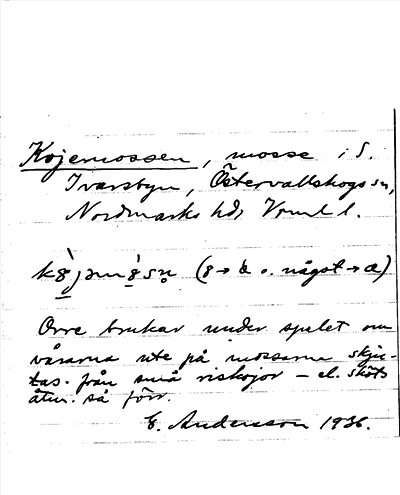 Kojemossen, mosse i S.
Ivarsbyn, Östervallskogs sn,
Nordmarks hd, Vrml l.
(8→ o. något→æ)
Orre brukar under spelet om
vårarna ute på mossarna skju-
tas från små riskojor – el. sköts
åtm. så förr.
E. Andersson 1936.